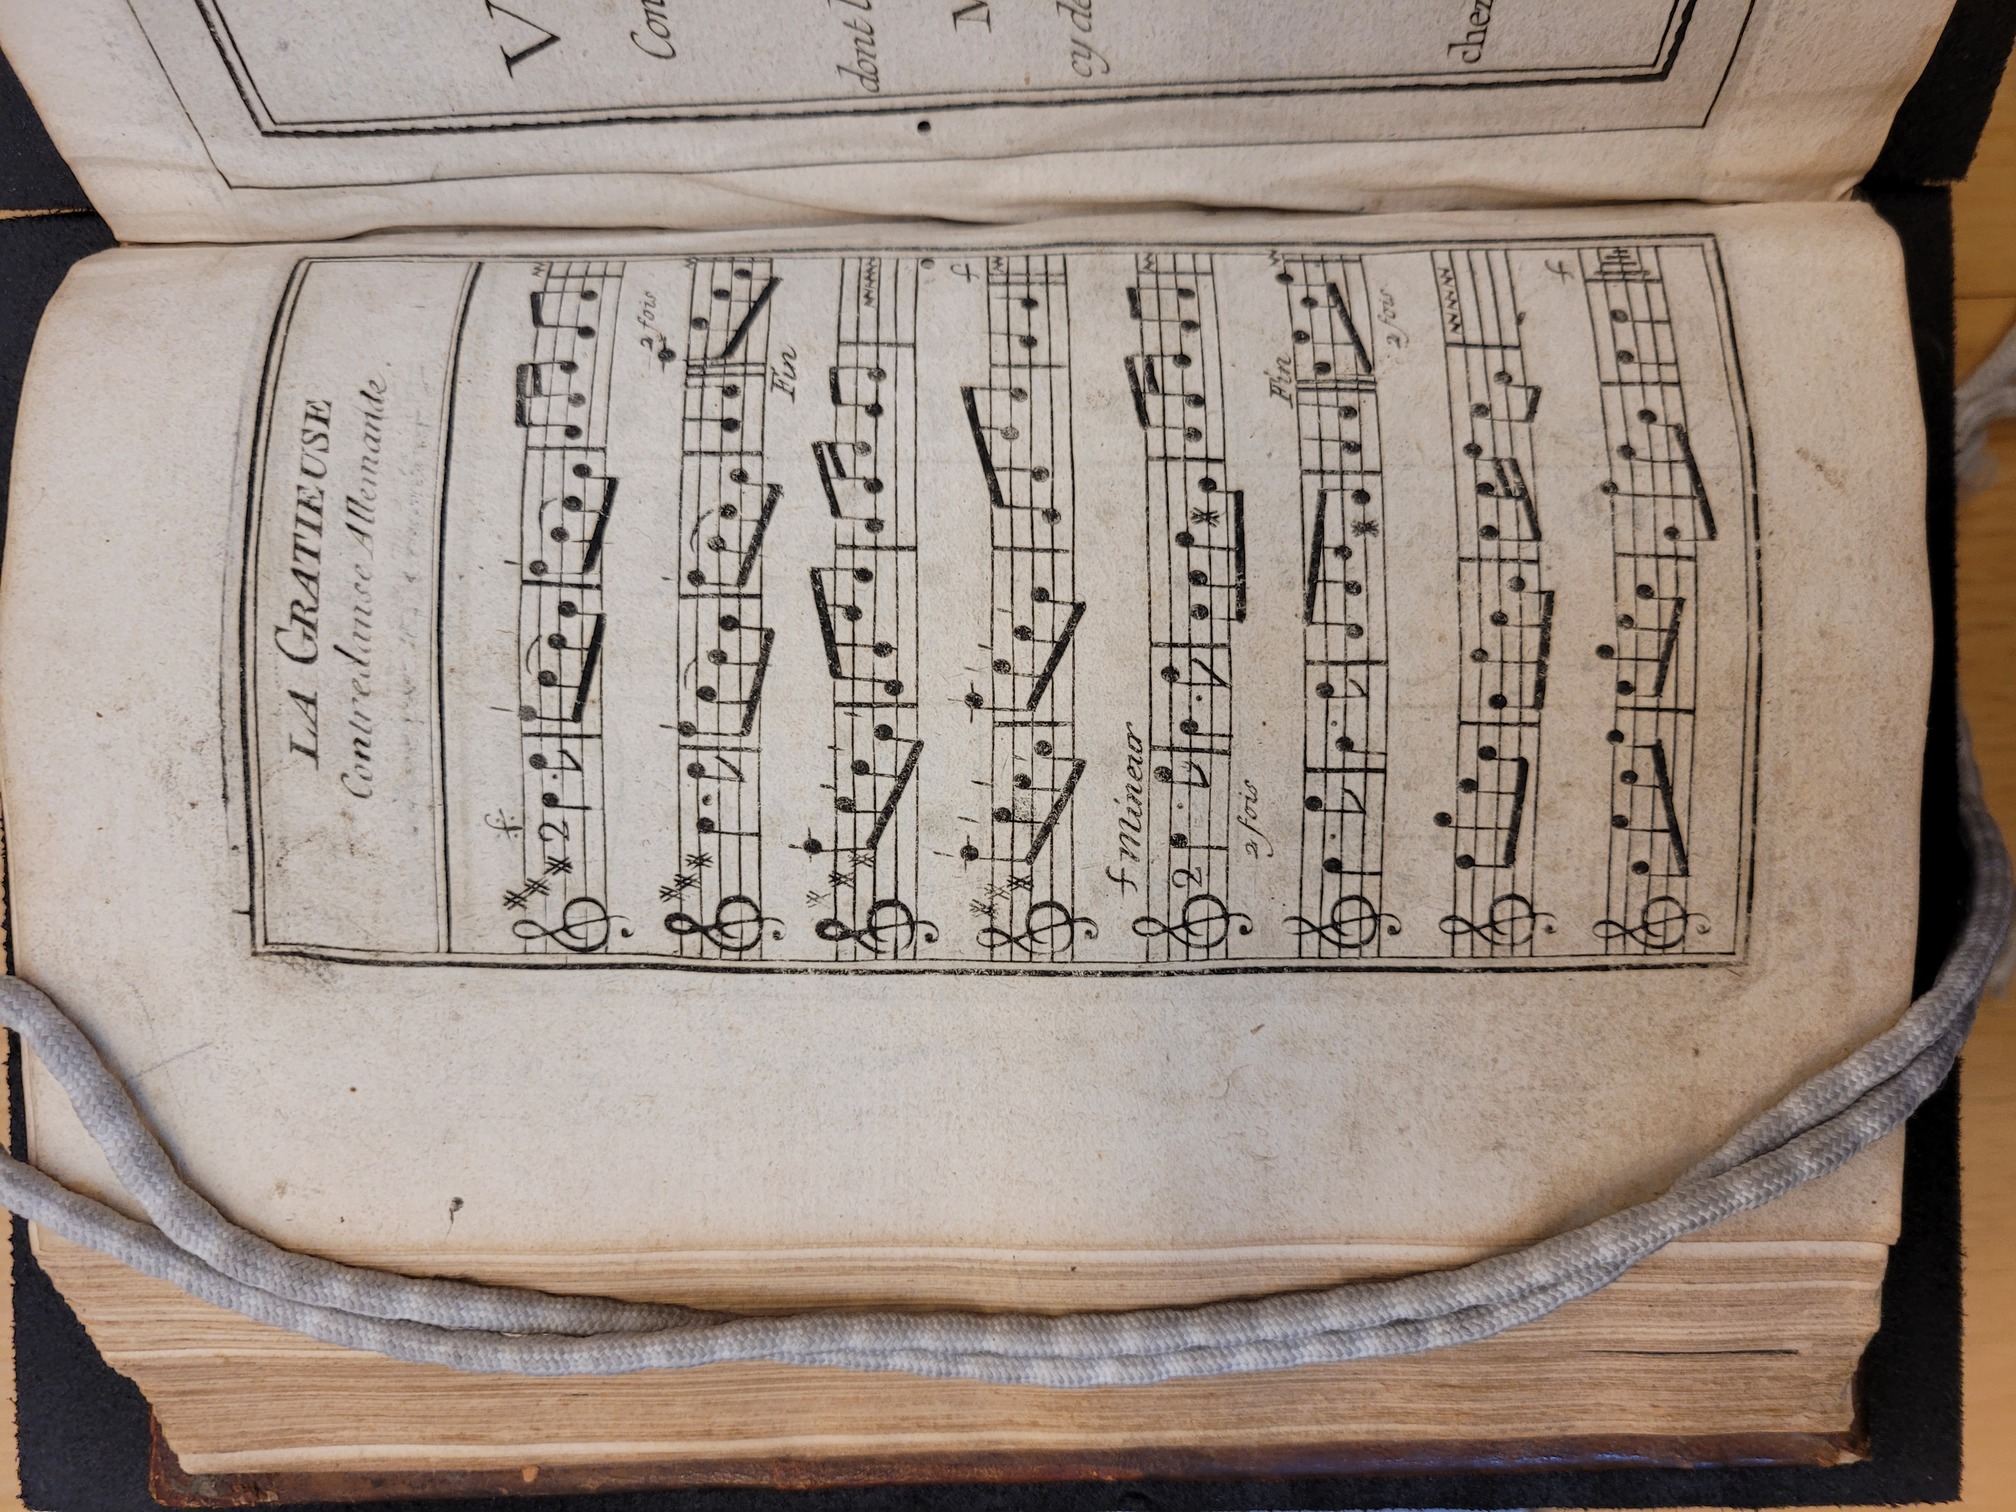 LA GRATIEUSE
Contredanse Allemande.
2 fois
Fin
f Mineur
2 fois
Fin
2 fois
V
Con
dont l
M
cy de
chez